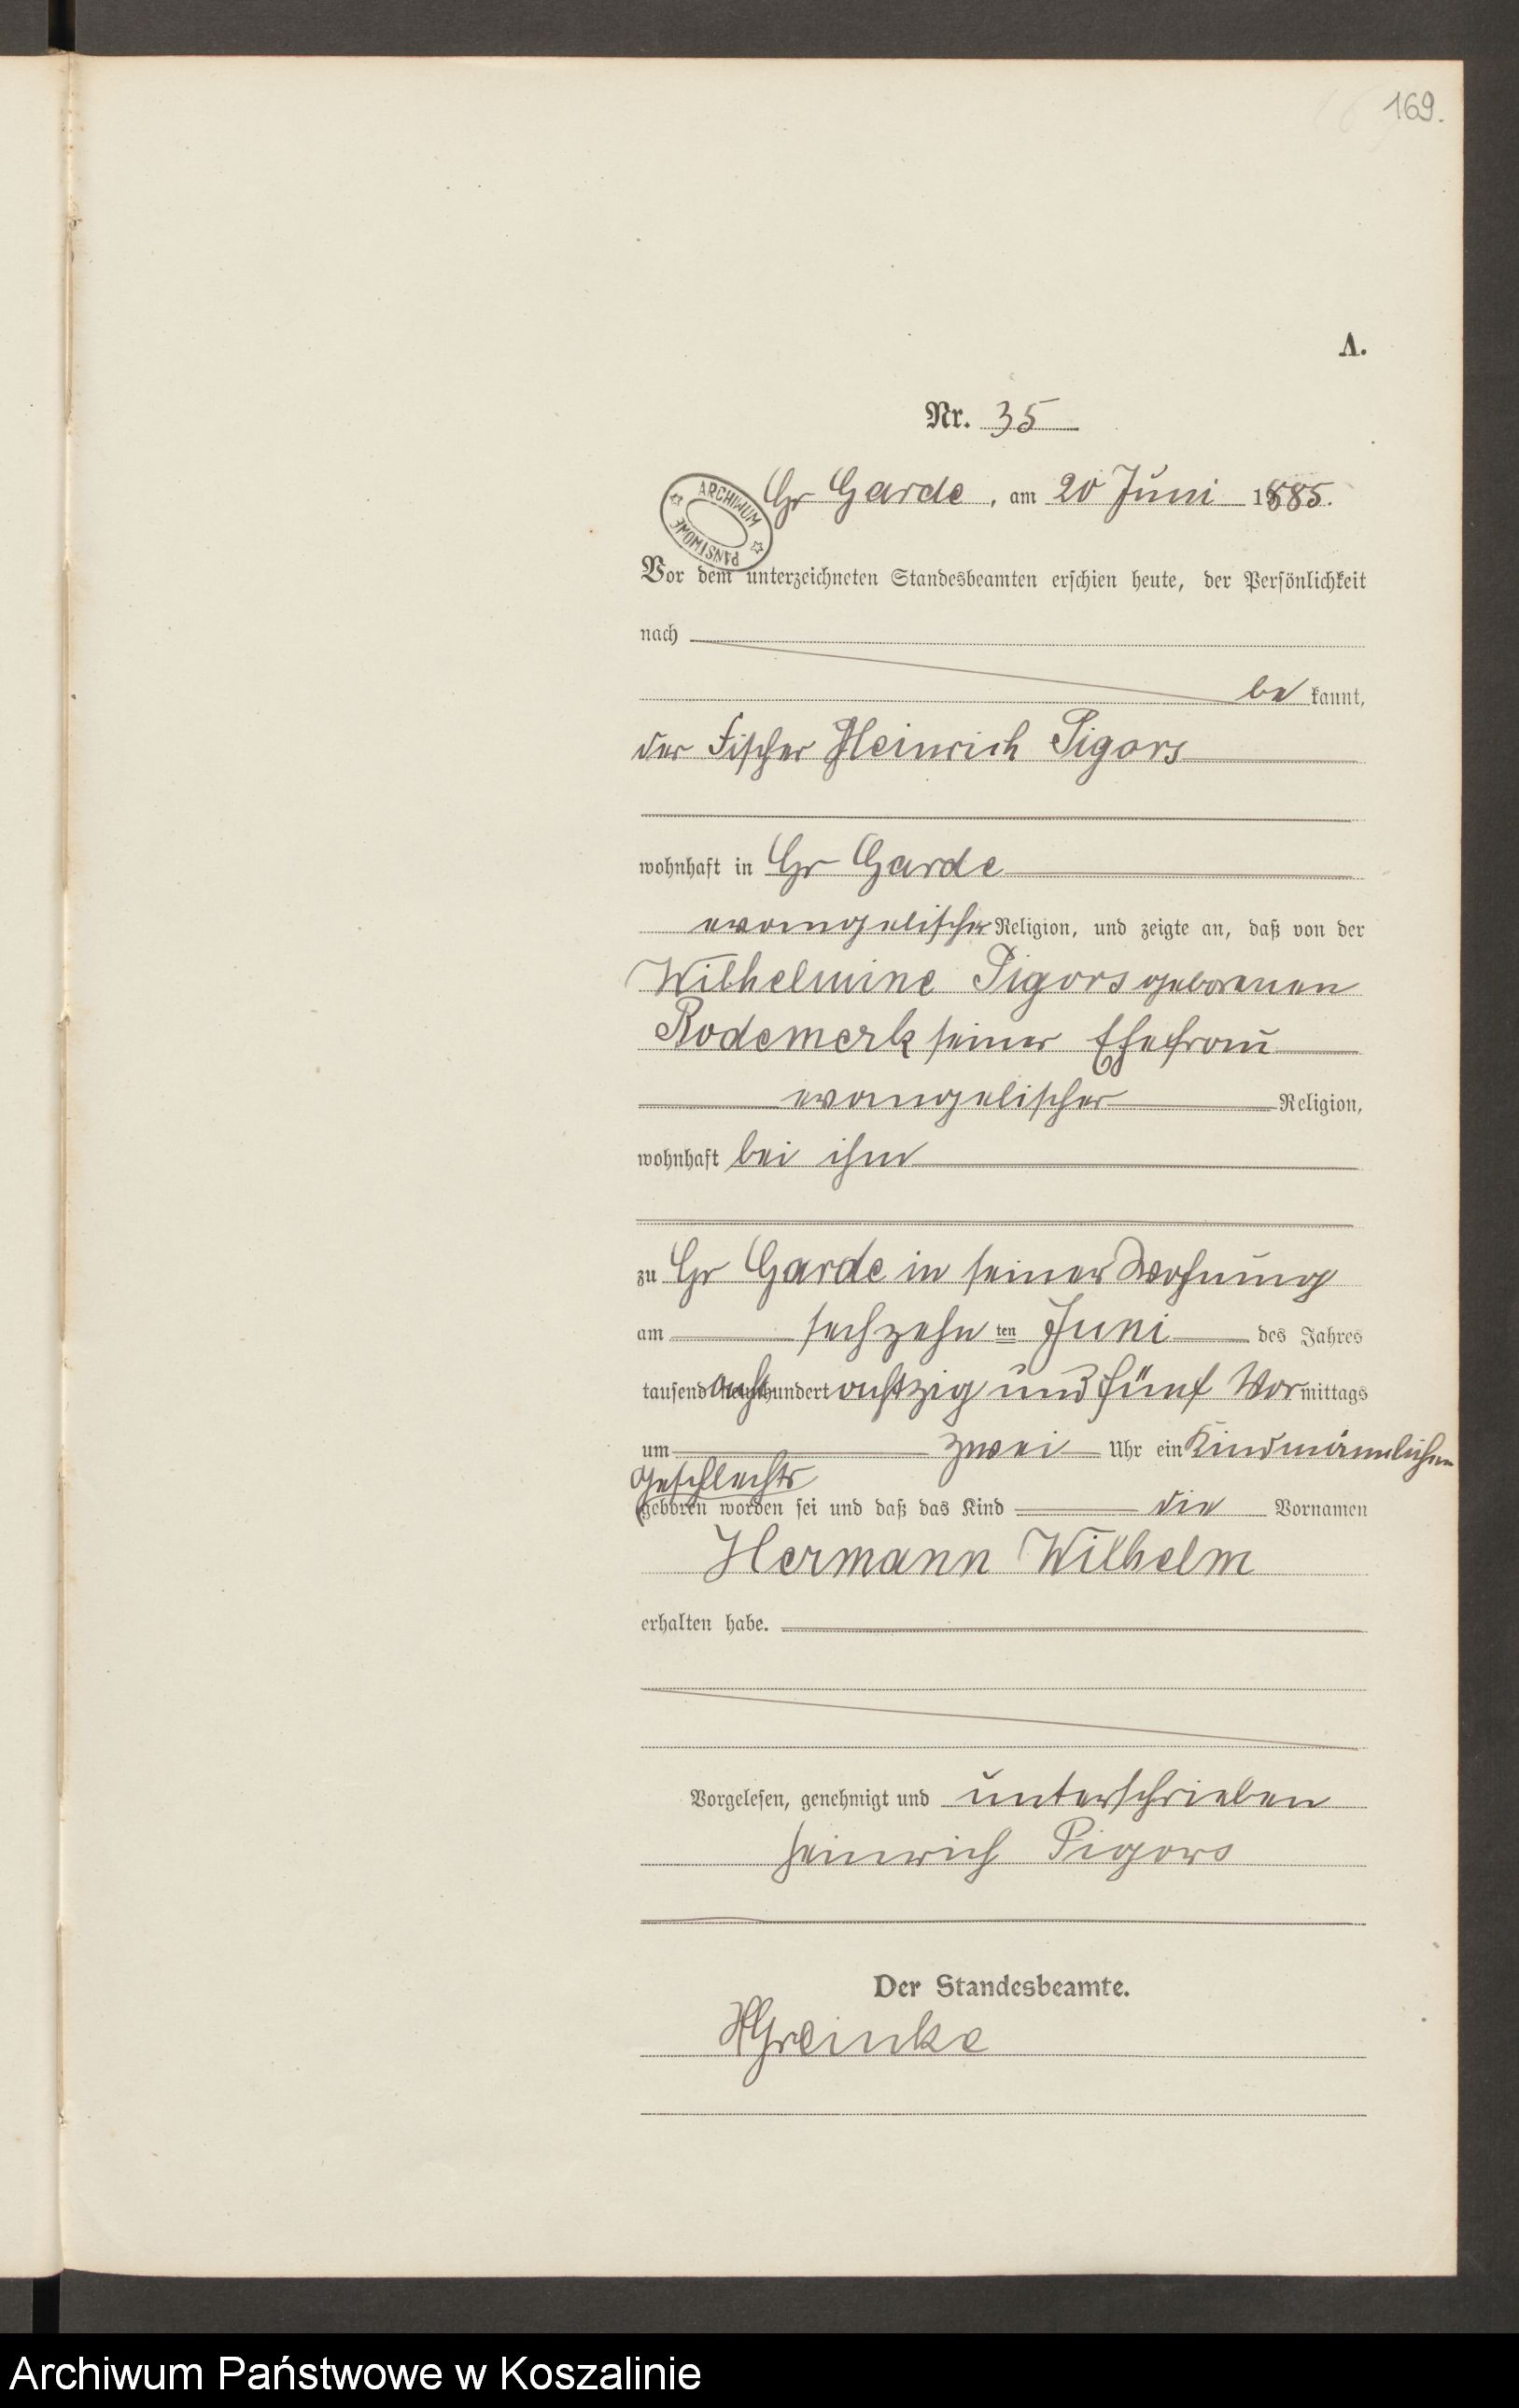 169.
A.
Nr. 35
Gr Garde, am 20 Juni 1885.
ARCHIWUM PAŃSTWOWE
Vor dem unterzeichneten Standesbeamten erschien heute, der Persönlichkeit
nach
be kannt,
der Fischer Heinrich Pigors
wohnhaft in Gr Garde
evangelischer Religion, und zeigte an, daß von der
Wilhelmine Pigors geborenen
Rodemerk seiner Ehefrau
evangelischer Religion,
wohnhaft bei ihm
zu Gr Garde in seiner Wohnung
am sechzehn ten Juni des Jahres
tausend acht hundert achtzig und fünf Vor mittags
um zwei Uhr ein Kind männlichen
Geschlechts
geboren worden sei und daß das Kind die Vornamen
Hermann Wilhelm
erhalten habe.
Vorgelesen, genehmigt und unterschrieben
Heinrich Pigors
Der Standesbeamte.
HGreinke
Archiwum Państwowe w Koszalinie